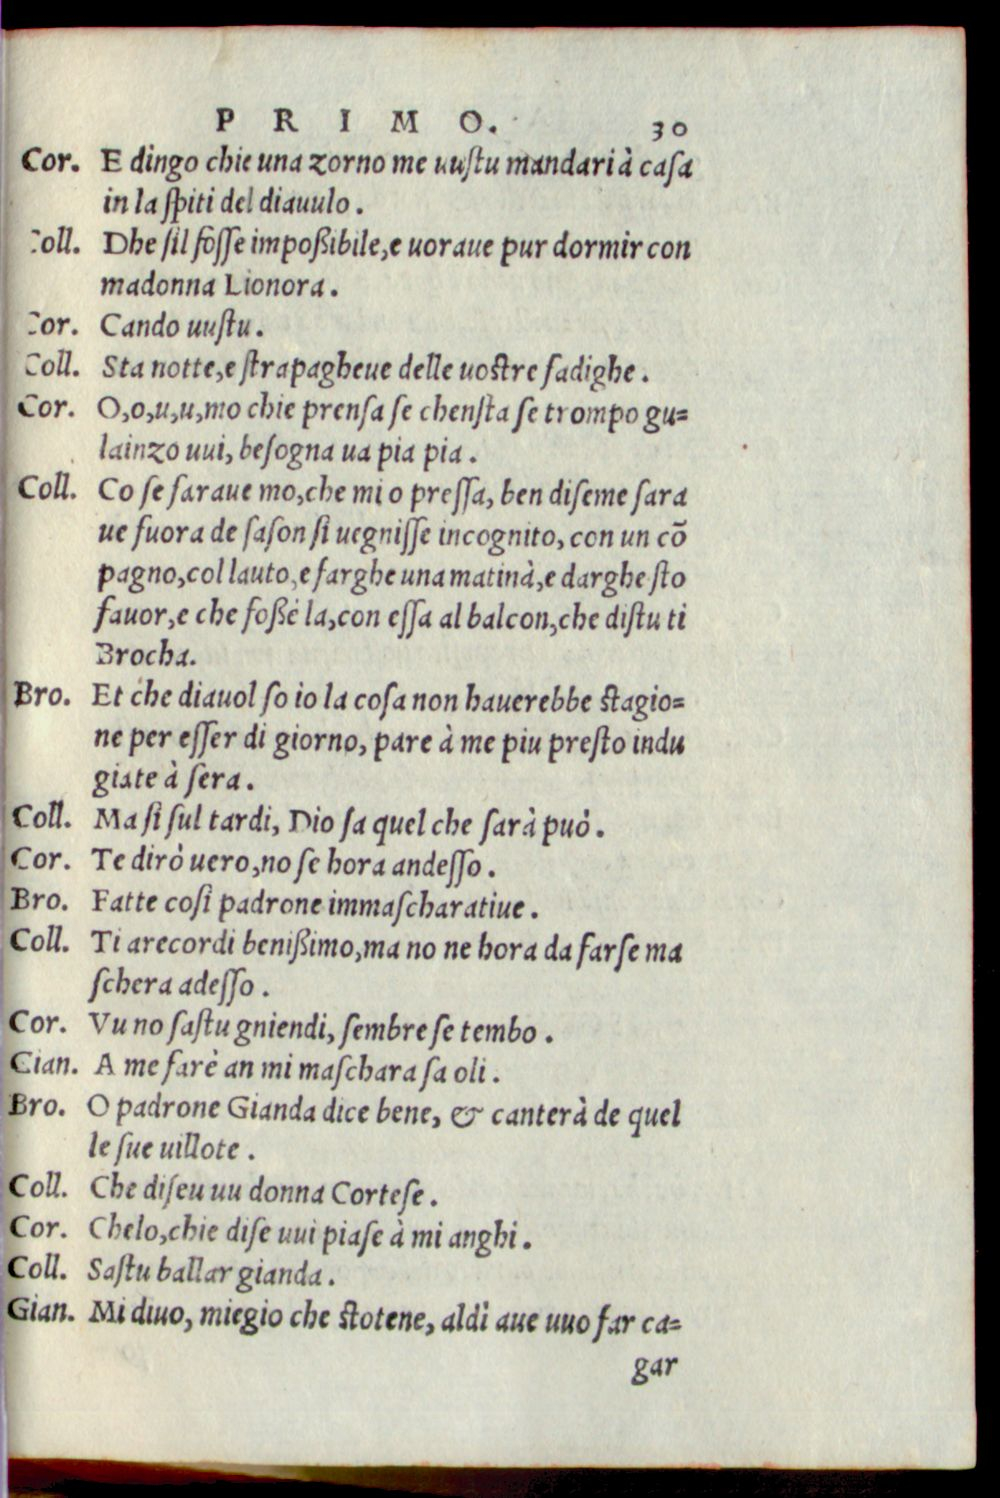 PRIMO. 30
Cor. E dingo chie una zorno me uuſtu mandari à caſa
in la ſpiti del diauulo.
Coll. Dhe ſil foſſe impoßibile, e uoraue pur dormir con
madonna Lionora.
Cor. Cando uuſtu.
Coll. Sta notte, e ſtrapagheue delle uoſtre fadighe.
Cor. O,o,u,u,mo chie prenſa ſe chenſta ſe trompo gu=
lainzo uui, beſogna ua pia pia.
Coll. Co ſe faraue mo, che mi o preſſa, ben diſeme ſara
ue fuora de ſaſon ſi uegniſſe incognito, con un cō
pagno, col lauto, e farghe una matinà, e darghe ſto
fauor, e che foßè la, con eſſa al balcon, che diſtu ti
Brocha.
Bro. Et che diauol ſo io la coſa non hauerebbe ſtagio=
ne per eſſer di giorno, pare à me piu preſto indu
giate à ſera.
Coll. Ma ſi ſul tardi, Dio ſa quel che ſarà può.
Cor. Te dirò uero, no ſe hora andeſſo.
Bro. Fatte coſi padrone immaſcharatiue.
Coll. Ti arecordi benißimo, ma no ne hora da farſe ma
ſchera adeſſo.
Cor. Vu no ſaſtu gniendi, ſembre ſe tembo.
Gian. A me farè an mi maſchara ſa oli.
Bro. O padrone Gianda dice bene, & canterà de quel
le ſue uillote.
Coll. Che diſeu uu donna Corteſe.
Cor. Chelo, chie diſe uui piaſe à mi anghi.
Coll. Saſtu ballar gianda.
Gian. Mi diuo, miegio che ſtotene, aldì aue uuo far ca=
gar